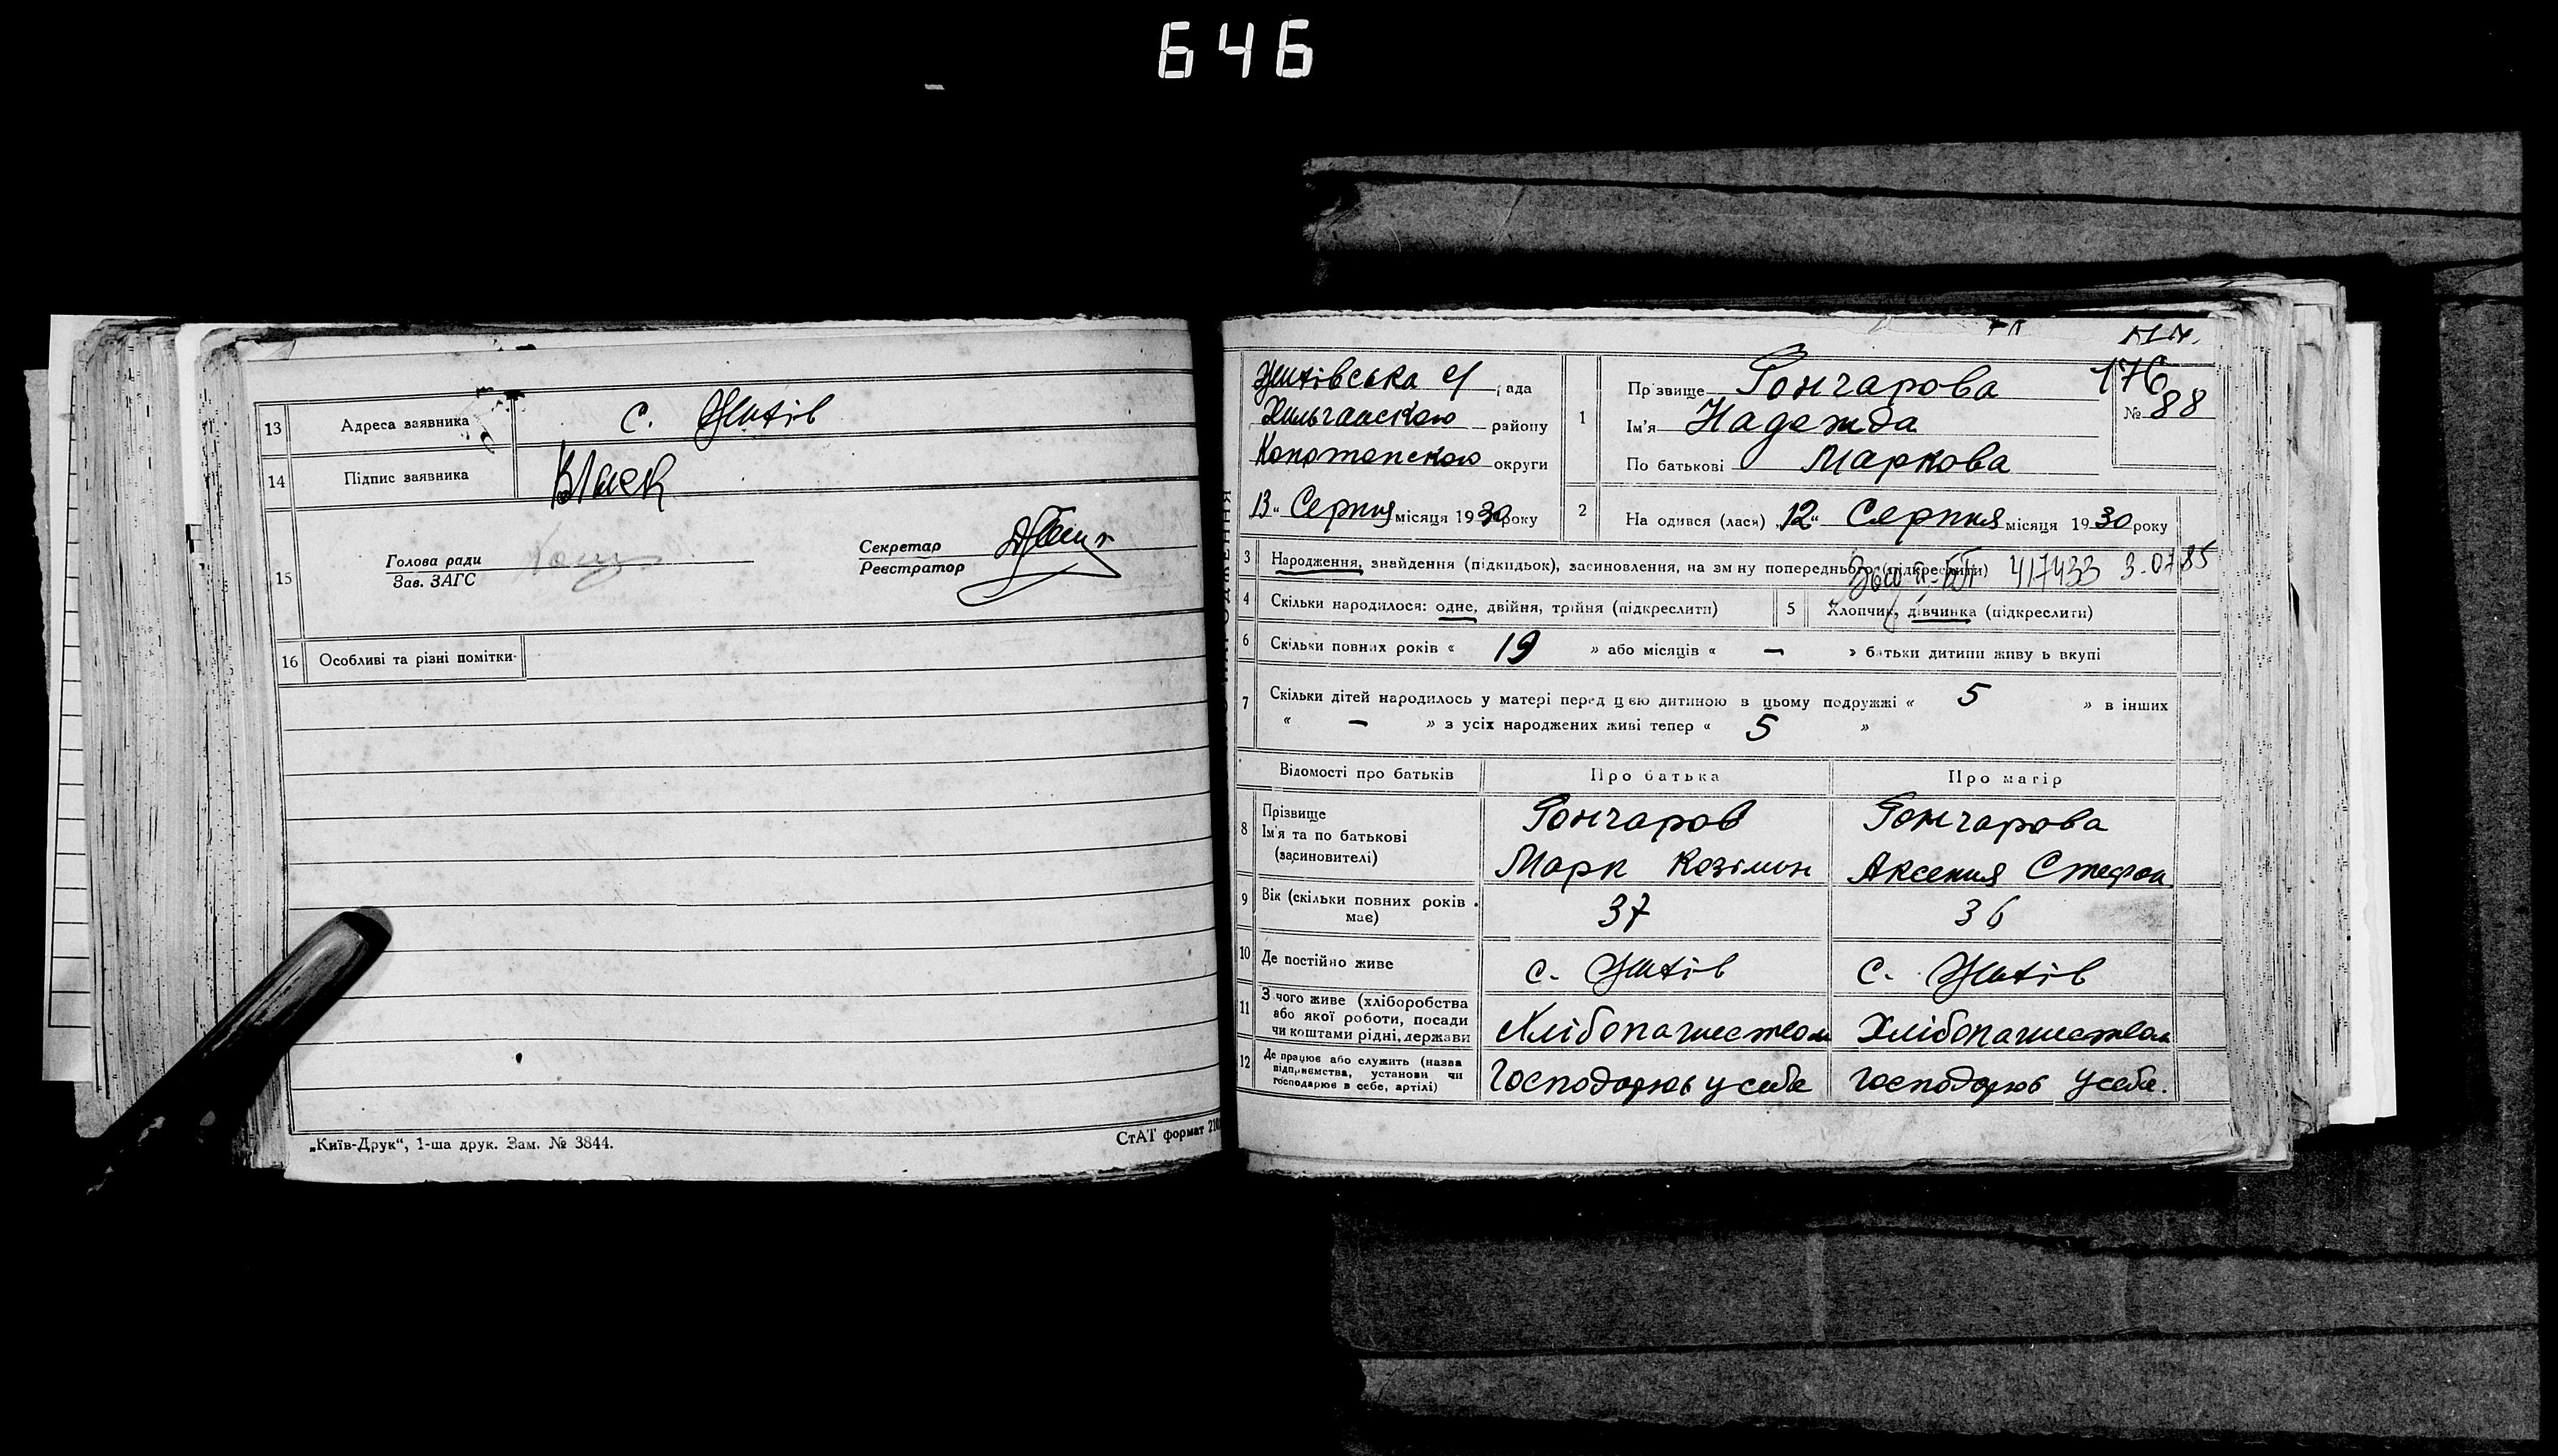 646
13 Адреса заявника с. Жихів
14 Підпис заявника
15 Голова ради
Зав. ЗАГС
Секретар
Реєстратор
16 Особливі та різні помітки
„Київ-Друк“, 1-ша друк. Зам. № 3844.
СтАТ формат
176
Жихівська с/ рада
району
Конотопською округи
13 „ Серпня місяця 1930 року
1 Прізвище Гончарова
Ім'я Надежда
По батькові Маркова
№ 88
2 Народився (лася) „12“ Серпня місяця 1930 року
3 Народження, знайдення (підкидьок), засиновлення, на зміну попереднього (підкреслити)
417433 3.07.85
4 Скільки народилося: одне, двійня, трійня (підкреслити) 5 Хлопчик, дівчинка (підкреслити)
6 Скільки повних років « 19 » або місяців « — » батьки дитини живуть вкупі
7 Скільки дітей народилось у матері перед цією дитиною в цьому подружжі « 5 » в інших
« — » з усіх народжених живі тепер « 5 »
Відомості про батьків Про батька Про матір
8 Прізвище
Ім'я та по батькові
(засиновителі)
Гончаров
Марк Козімон
Гончарова
Аксения Стефан
9 Вік (скільки повних років має) 37 36
10 Де постійно живе с. Жихів с. Жихів
11 З чого живе (хліборобства
або якої роботи, посади
чи коштами рідні, держави
Хлібопашеством Хлібопашеством
12 Де працює або служить (назва
підприємства, установи чи
господарює в себе, артілі)
Господарює у себе господарює у себе.